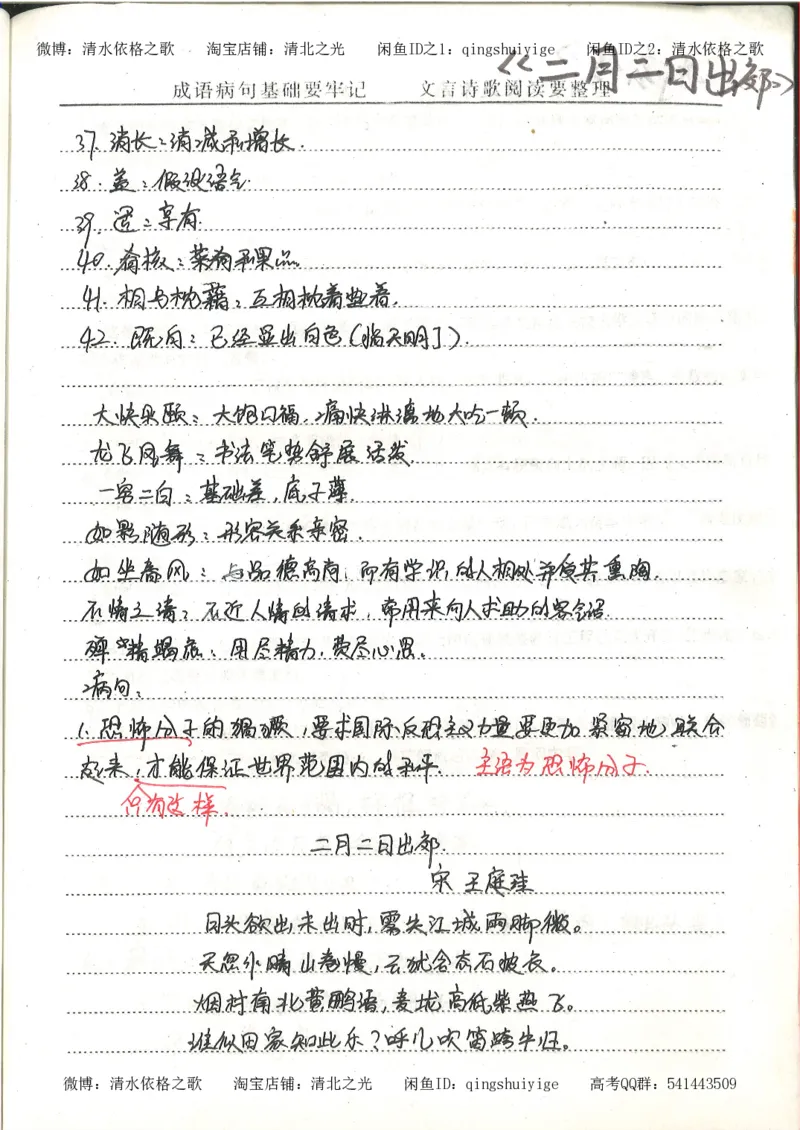 微博：清水依格之歌 淘宝店铺：清北之光 闲鱼ID之1：qingshuiyige 闲鱼ID之2：清水依格之歌
《二月二日出郊》
成语病句基础要牢记 文言诗歌阅读要整理
37. 消长：消减和增长.
38. 盖：假设语气.
39. 适：享有.
40. 肴核：菜肴和果品.
41. 相与枕藉：互相枕着垫着.
42. 既白：已经显出白色（指天明了）.
大快朵颐：大饱口福，痛快淋漓地大吃一顿.
龙飞凤舞：书法笔势舒展活泼.
一穷二白：基础差，底子薄.
如影随形：形容关系亲密.
如坐春风：与品德高尚，而有学识的人相处并受其熏陶.
不情之请：不近人情的请求，常用来向人求助的客套语.
殚精竭虑：用尽精力，费尽心思。
病句：
1. 恐怖分子的猖獗，要求国际反恐主义力量要更加紧密地联合
起来，才能保证世界范围内的和平. 主语为恐怖分子.
只有这样.
二月二日出郊.
宋 王庭珪
日头欲出未出时，雾失江城雨脚微。
天忽作晴山卷幔，云犹含态石披衣。
烟村南北黄鹂语，麦垅高低紫燕飞。
谁似田家知此乐？呼儿吹笛跨牛归。
微博：清水依格之歌 淘宝店铺：清北之光 闲鱼ID：qingshuiyige 高考QQ群：541443509